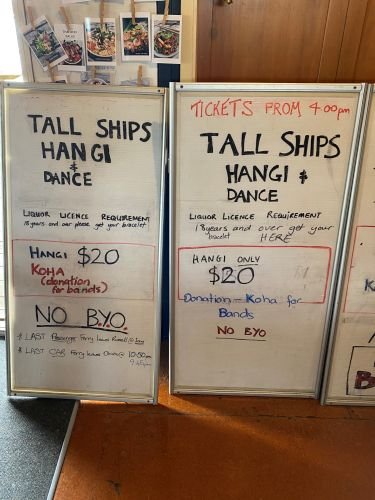 TALL SHIPS
HANGI
&
DANCE
LIQUOR LICENCE REQUIREMENT
18 years and over please get your bracelet
HANGI $20
KOHA
(donation
for bands)
NO B.Y.O.
* LAST Passenger Ferry leaves Russell @
* LAST CAR Ferry leaves @ 10:50pm
TICKETS FROM 4.00pm
TALL SHIPS
HANGI &
DANCE
LIQUOR LICENCE REQUIREMENT
18 years and over get your
bracelet HERE
HANGI ONLY
$20
Donation - Koha for
Bands
NO BYO